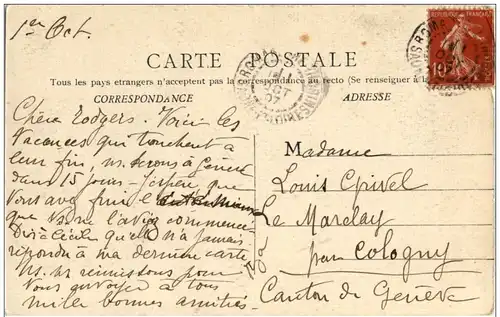 1er Oct.
CARTE POSTALE
Tous les pays etrangers n'acceptent pas la correspondance au recto (Se renseigner à la
CORRESPONDANCE
ADRESSE
OCT
07
10
Chère Rodgers. Voici les
vacances qui touchent à
leur fin, ns. serons à Genève
dans 15 jours. J'espère que
vous avez fini le
que l'a commencé
Dis à Cécile qu'elle n'a jamais
répondu à ma dernière carte
Ns. ns. réunissons pour
vous envoyer à tous
mille bonnes amitiés.
Madame
Louis Chivel
Le Marclay
par Cologny
Canton de Genève